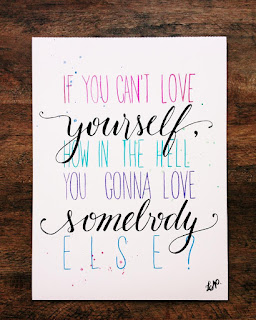 IF YOU CAN'T LOVE
yourself,
HOW IN THE HELL
YOU GONNA LOVE
somebody
ELSE?